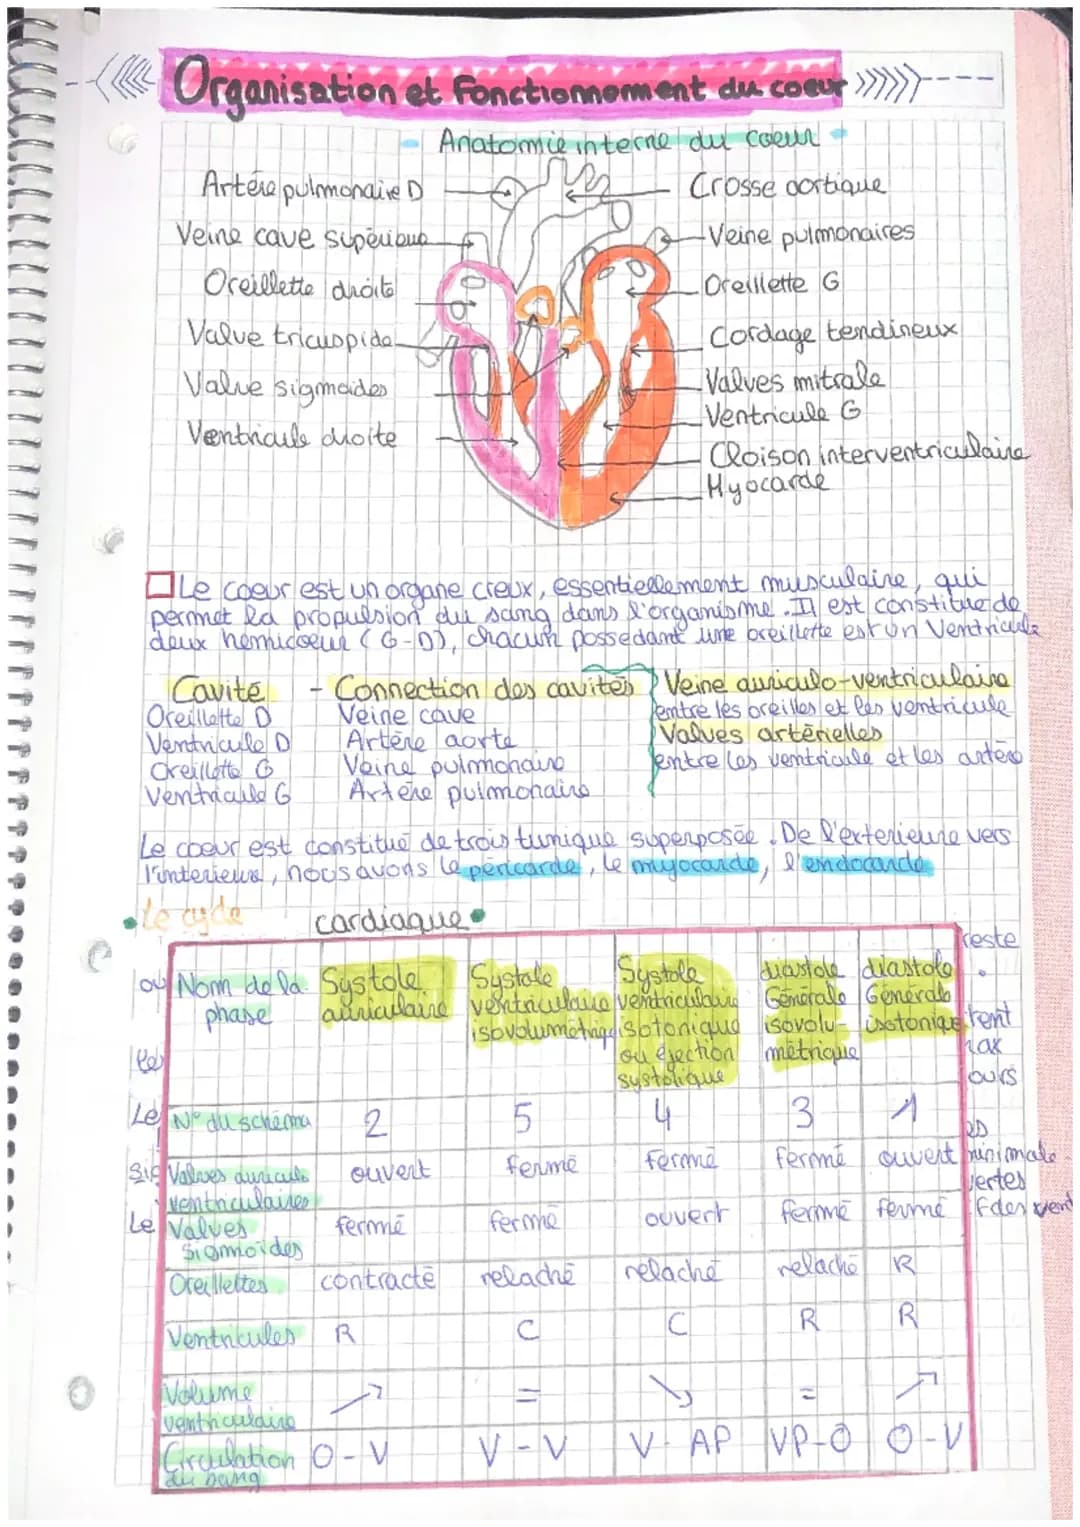 Organisation et Fonctionnement du coeur
Anatomie interne du coeur
Artére pulmonaire D
Crosse aortique
Veine cave supérieure
Veine pulmonaires
Oreillette droite
Oreillette G
Valve tricuspide
Cordage tendineux
Valve sigmoides
Valves mitrale
Ventricule G
Ventricule droite
Cloison interventriculaire
Myocarde
Le coeur est un organe creux, essentiellement musculaire, qui
permet la propulsion du sang dans l'organisme. Il est constitue de
deux hemicoeur (G-D), chacun possedant une oreillette est un Ventricule
Cavité - Connection des cavités
Oreillette D Veine cave
Ventricule D Artère aorte
Oreillette G Veine pulmonaire
Ventricule G Artere pulmonaire
Veine auriculo-ventriculaire
entre les oreilles et les ventricule
Valves artérielles
entre les ventricule et les artère
Le coeur est constitué de trois tunique superposée. De l'exterieure vers
l'interieur, nous avons le péricarde, le myocarde, l'endocarde
Le cycle cardiaque
Nom de la phase
Systole auriculaire
Systole ventriculaire isovolumétrique
Systole ventriculaire isotonique ou éjection systolique
diastole Générale isovolu-métrique
diastole Générale isotonique
N° du schéma 2 5 4 3 1
Valves auriculo ventriculaires ouvert fermé fermé fermé ouvert
Valves sigmoïdes fermé fermé ouvert fermé fermé
Oreillettes contracté relaché relaché relaché R
Ventricules R C C R R
Volume ventriculaire ↗ = ↘ = ↗
Circulation du sang O-V V-V V-AP VP-O O-V
reste
tent
ours
minimale
Le
Le